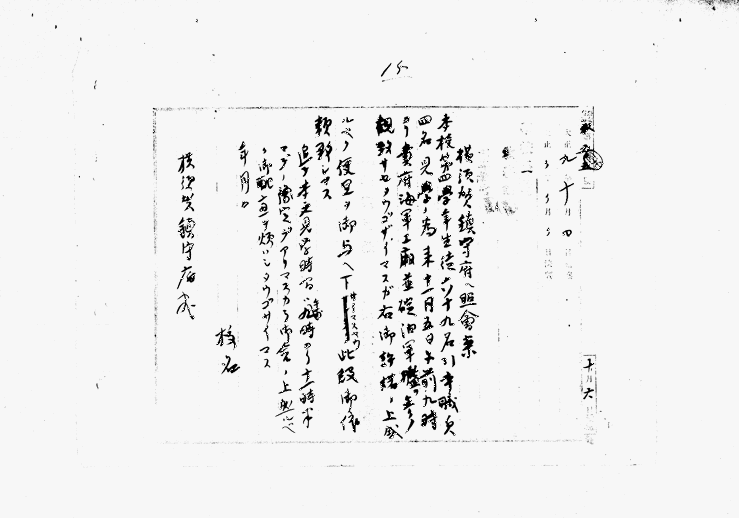 15
大正九 十月四
十月六
横須賀鎮守府ヘ照會案
本校第四學年生徒六十九名引率職員
四名見學ノ為来十一月五日午前九時
ヨリ貴府海軍工廠並碇泊軍艦
観致サセタウゴザイマスガ右御許諾ノ上成
ルベク便宜ヲ御与ヘ下サイマスヤウ此段御依
頼致シマス
追テ本立見学時間ハ九時ヨリ十二時半
マデノ豫定デアリマスカラ御含ノ上
御配慮ヲ煩ハシタウゴザイマス
年月日
校名
横須賀鎮守府宛